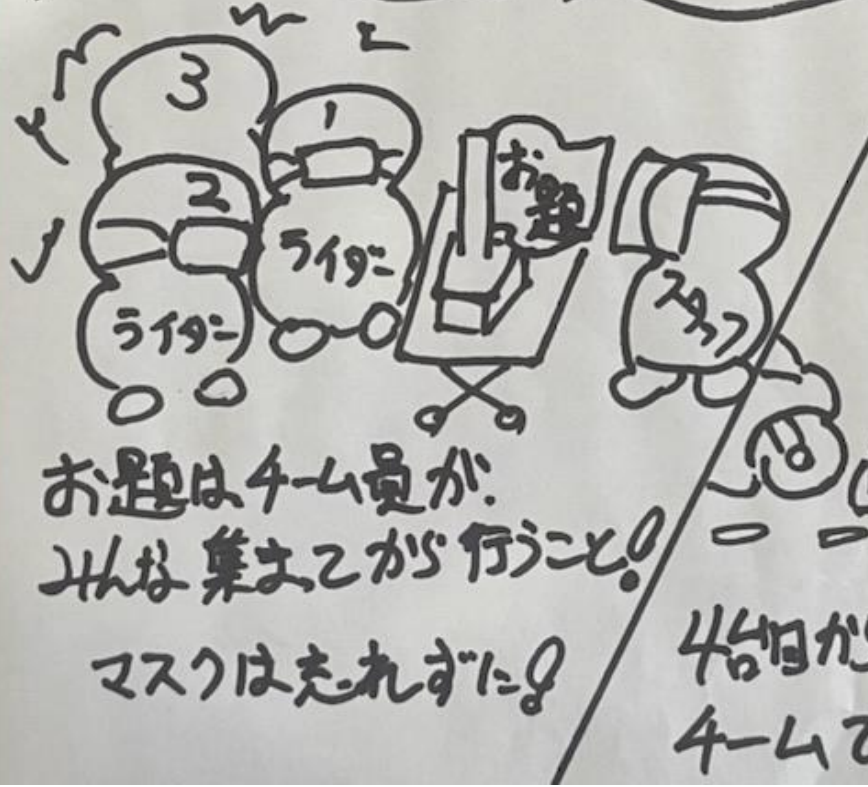 3
1
2
ライダー
ライダー
お題
スタッフ
お題はチーム員が、
みんな集まってから行うこと!
マスクは忘れずに!
4台目から
チームで